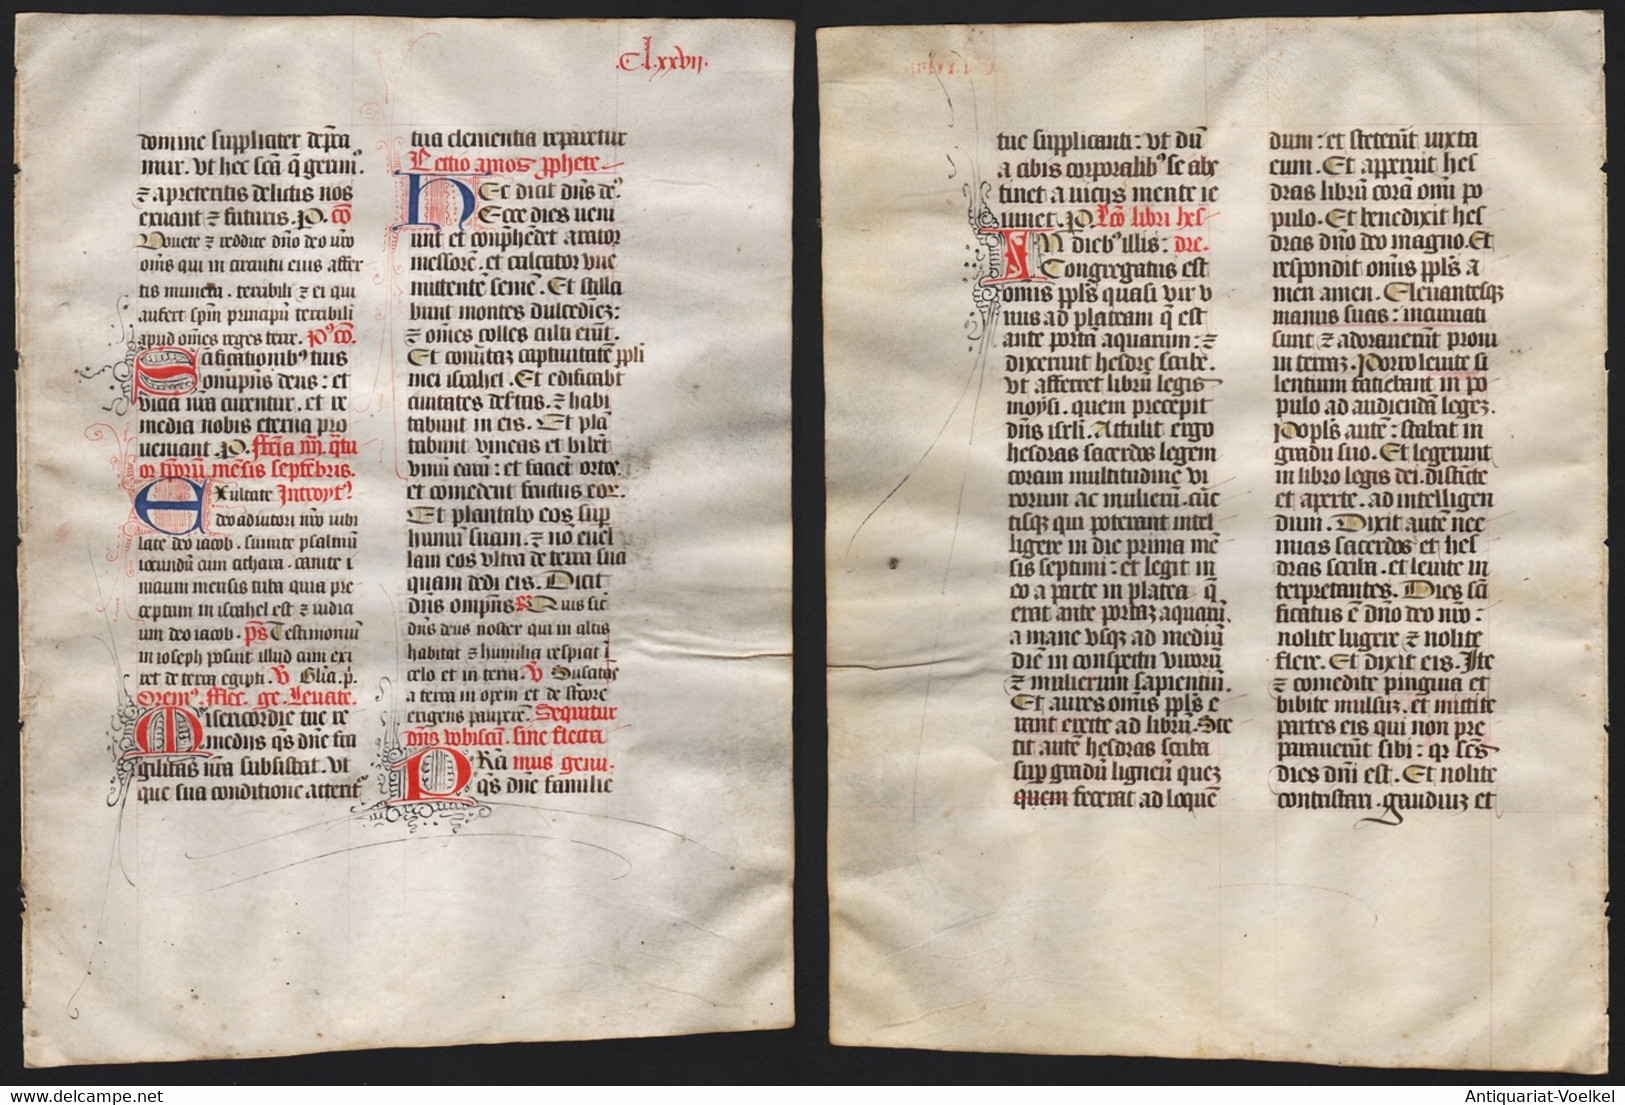 .C.l.xxvij.
domine suppliciter dep̄ca
mur. Vt hec sc̄a q̄ geım⁹.
⁊ a preteritis delictis nos
exuant ⁊ futuris. P. cō
Vouete ⁊ reddite dn̄o deo vr̄o
om̄s qui in circuitu eius affer
tis munera. terribili ⁊ ei qui
aufert sp̄m principū terribili
apud om̄es reges terre. Pꝰ cō.
Sc̄ificationibꝰ tuis
om̄ıp̄n̄s deus: et
vicia nr̄a curentur. et re
media nobis eterna pro
ueniant. P. Fer̄ia iiij. q̄tu
or tp̄orū mēsis septēbris.
Exultate Introytꝰ
deo adiutori nr̄o iubi
late deo iacob. sumite psalmū
iocundū cum cithara. canite i
nicium mensis tuba quia pre
ceptum in israhel est ⁊ iudici
um deo iacob. ps̄ Testimonium
in ioseph posuit illud cum exi
ret de terra egipti. V Gl̄ia p̄.
Orem⁹. Flec. ge. Leuate.
Misericordie tue re
medijs q̄s dn̄e fra
gilitas nr̄a subsistat. Vt
que sua conditione atterit᷑
tua clementia reparetur
Lectio amos p̄phete
Hec dicit dn̄s de⁹.
Ecce dies veni
unt et conp̄hēdet arator
messorē. et calcator vue
mittentē semē. Et stilla
bunt montes dulcedinē:
⁊ om̄es colles culti erūt.
Et conūtā captiuitatē pp̄li
mei israhel. Et edificabt
ciuitates dertas. ⁊ habi
tabunt in eis. Et plā
tabunt vineas et bibēt
vinū earū: et faciēt ortos
et comedent fructus eoꝝ.
Et plantabo eos sup
humū suam. ⁊ nō euel
lam eos vltra de terra sua
quam dedi eis. Dicit
dn̄s om̄pn̄s R̄ Quis sic̄
dn̄s deus noster qui in altis
habitat ⁊ humilia respicit ī
celo et in terra V Suscitās
a terra inopem et de stercore
erigens pauperē. Sequitur
dn̄s vobiscū. sine flecta
Prā mus genu.
q̄s dn̄e familie
tue supplicanti: vt dū
a cibis corporalibꝰ se abs
tinet a vicijs mente ie
iunet. P. Lc̄o libri hes
In diebꝰ illis: dre.
Congregatus est
om̄is pp̄ls quasi vir v
nus ad plateam q̄ est
ante portā aquarum: ⁊
dixerunt hesdre scribe.
vt afferret librū legis
moysi. quem precepit
dn̄s isrl̄i. Attulit ergo
hesdras sacerdos legem
coram multitudine vi
rorum ac mulierū. cūc
tisqꝫ qui poterant intel
ligere in die prima mē
sis septimi: et legit in
eo aperte in platea q̄
erat ante portā aquarū.
a mane vsqꝫ ad mediū
diē in conspectu virorū
⁊ mulierum sapientiū.
Et aures om̄is pp̄ls e
rant erecte ad librū. Ste
tit autē hesdras scriba
sup gradū ligneū quez
quem fecerat ad loquē
dum: et steterūt iuxta
eum. Et aperuit hes
dras librū corā om̄i po
pulo. Et benedixit hes
dras dn̄o deo magno. Et
respondit om̄is pp̄ls a
men amen. Eleuantesqꝫ
manus suas: incuruati
sunt ⁊ adorauerūt proni
in terrā. Porro leuite si
lentium faciebant in po
pulo ad audiendā legez.
Pop̄ls autē: stabat in
gradu suo. Et legerunt
in libro legis dei. distīcte
et aperte. ad intelligen
dum. Dixit autē nee
mias sacerdos et hes
dras scriba. et leuite in
terpretantes. Dies sc̄i
ficatus ē dn̄o deo nr̄o:
nolite lugere ⁊ nolite
flere. Et dixit eis. Ite
⁊ comedite pinguia et
bibite mulsuz. et mittite
partes eis qui non pre
parauerūt sibi: qr sc̄us
dies dn̄i est. Et nolite
contristari. gaudiuz et
Antiquariat-Voelkel
delcampe.net